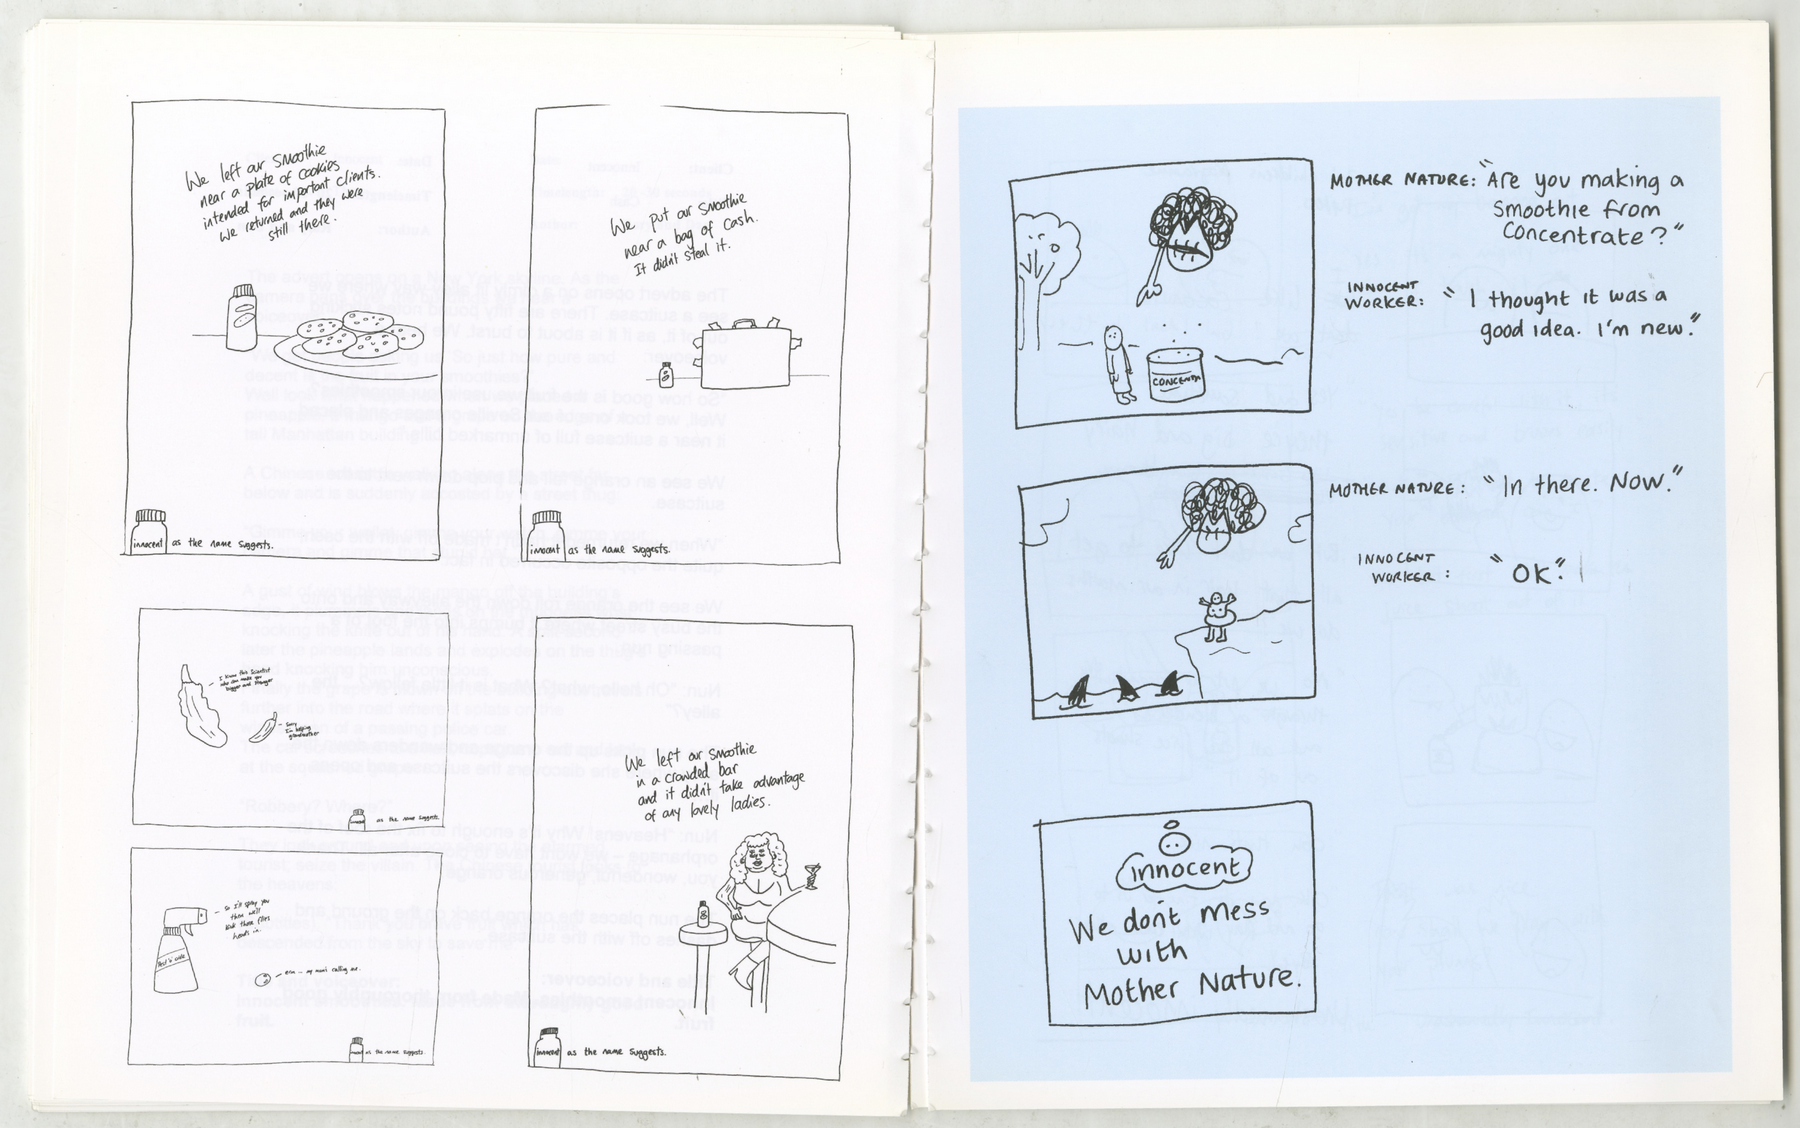 We left our smoothie
near a plate of cookies
intended for important clients.
We returned and they were
still there.
innocent as the name suggests.
We put our smoothie
near a bag of cash.
It didn't steal it.
innocent as the name suggests.
I know this scientist
who can make you
bigger and stronger
Sorry
I'm helping
grandmother
innocent as the name suggests.
So I'll spray you
then we'll
kick those flies
heads in.
erm - my mum's calling me.
innocent as the name suggests.
We left our smoothie
in a crowded bar
and it didn't take advantage
of any lovely ladies.
innocent as the name suggests.
MOTHER NATURE: "Are you making a
smoothie from
concentrate?"
INNOCENT
WORKER: "I thought it was a
good idea. I'm new."
MOTHER NATURE: "In there. Now."
INNOCENT
WORKER: "OK".
innocent
We don't mess
with
Mother Nature.